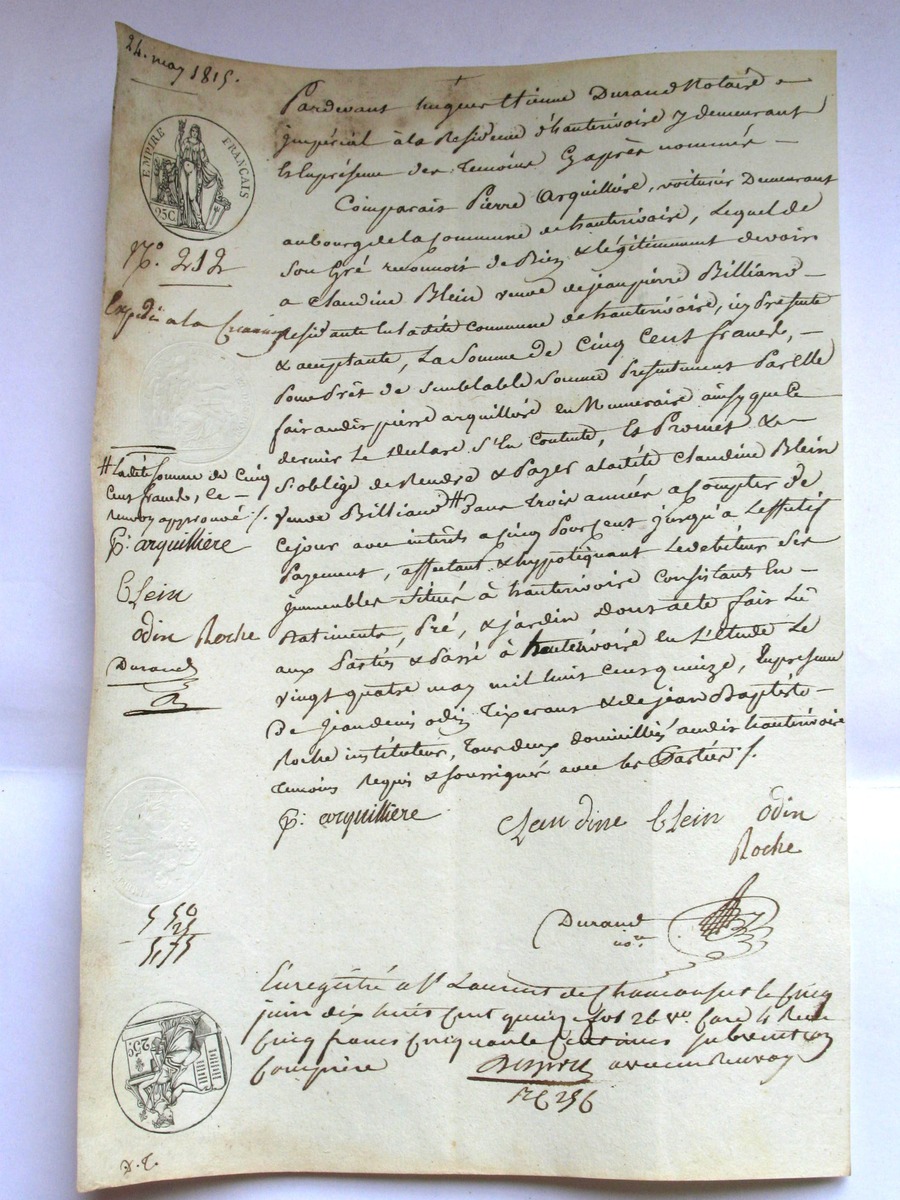 24. may 1815.
EMPIRE FRANÇAIS
25C
N.o 212
Expédié a la
Pardevant hugues Etienne Durand Notaire
impérial à la Residence d'hauterivoire y demeurant
Et En présence des temoins Cy après nommés —
Comparait Pierre Arquillière, voiturier Demeurant
au bourg de la Commune de hauterivoire, Lequel de
Son Gré reconnoit de Bien & légitimement devoir
a Claudine Blein veuve de jean pierre Billiand —
Residante En la dite Commune de hauterivoire, icy Présente
& acceptante, La Somme de Cinq Cent francs, —
Pour Prêt de Semblable Somme Présentement Par Elle
fait audit pierre arquillière en Numeraire ainsy que Ce
dernier Le déclare S'En Contente, Et Promet & —
S'oblige de Rendre & Payer a la dite Claudine Blein
Veuve Billiand # Dans trois années a Compter de
Cejour avec intérêts a cinq Pour Cent jusqu'a L'effectif
Payement, affectant & hypotéquant Le debiteur Ses
immeubles Situés à hauterivoire Consistant En —
Batiments, Pré, & jardin Dont acte fait Lû
aux Parties & Passé à hauterivoire En L'étude Le
vingt quatre may mil huit Cent quinze, En présence
De jean denis odin tixerant & de jean Baptiste —
Roche instituteur, tous deux domiciliés audit hauterivoire
temoins Requis & Soussignés avec les Parties ./.
# La dite Somme de Cinq
Cent francs, Ce —
renvoy approuvé ./.
P: arquilliere
blein
odin Roche
Durand
P: arquilliere
Clandine blein odin
Roche
Durand
no.re
5 50
25
5,75
Enregistré a St Laurent de Chamousset le cinq
juin dix huit cent quinze fol 26 v.o Case 4 Reçu
cinq francs cinquante centimes subvention
comprise
avec un Renvoy
25C